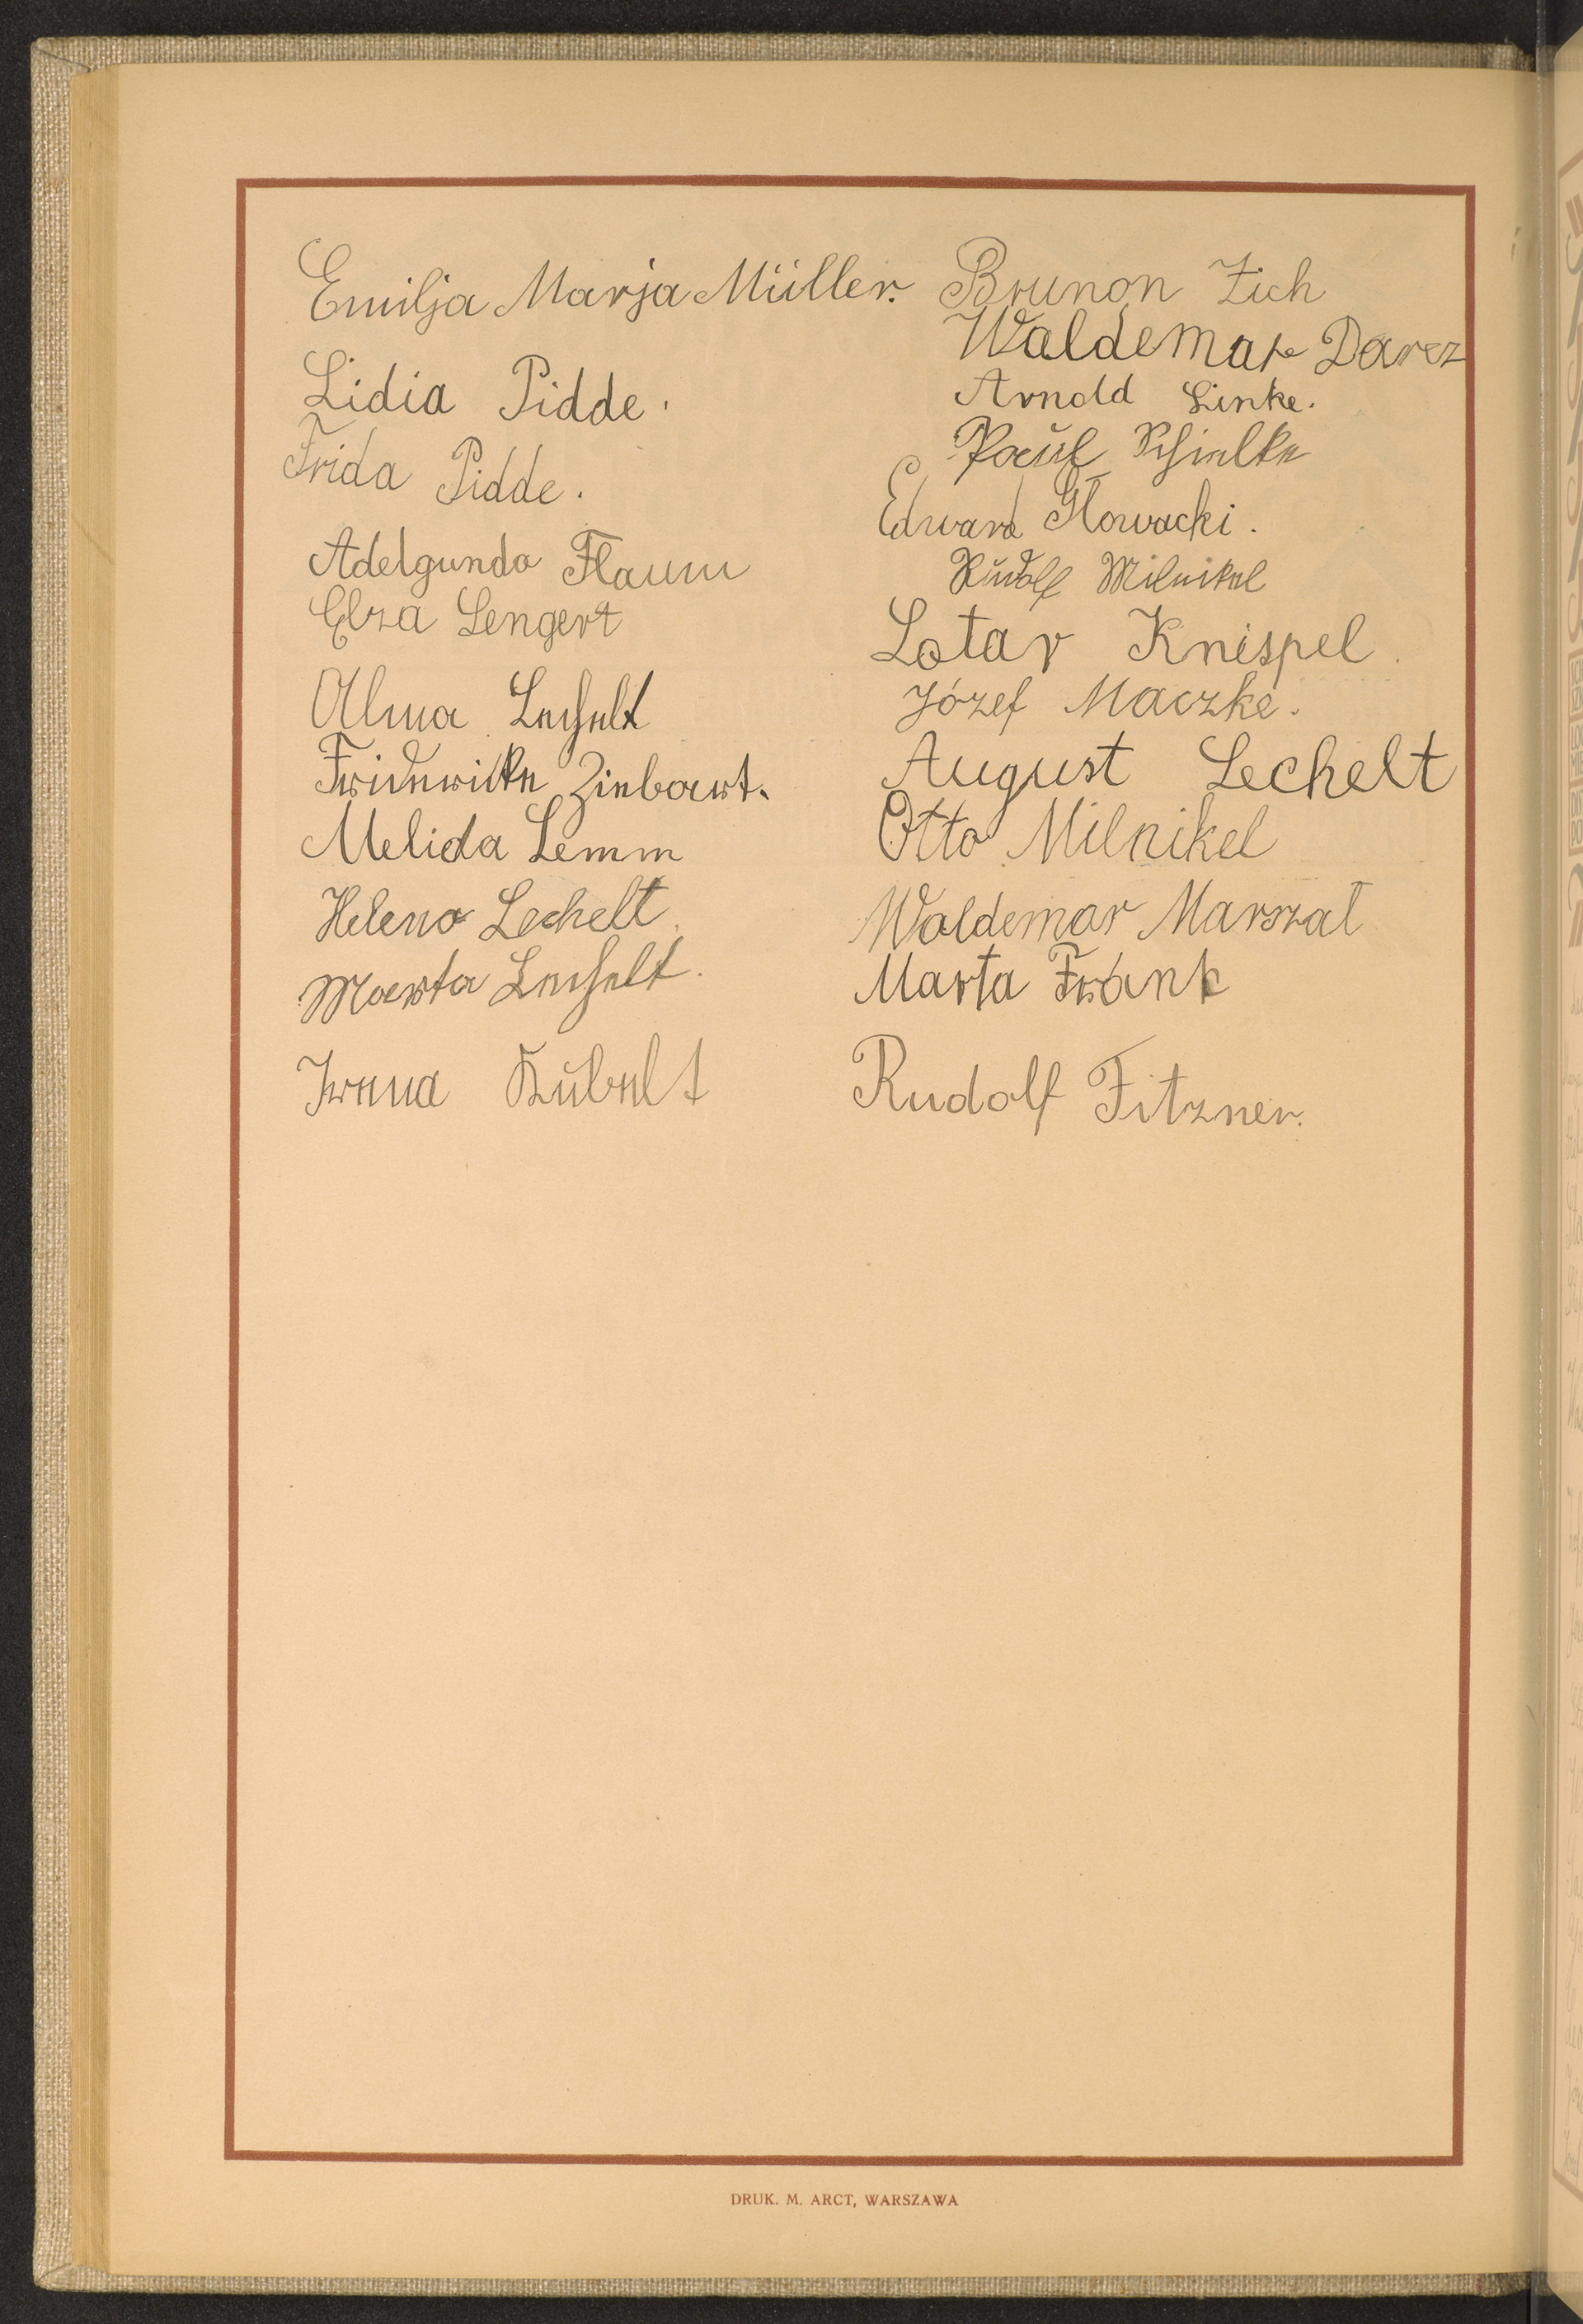 Emilja Marja Müller.
Lidia Pidde.
Frida Pidde.
Adelgunda Flaum
Elza Lengert
Alma Lechelt
Friderike Zinbart.
Melida Lemm
Helena Lechelt.
Marta Lechelt.
Irena Kubelt
Brunon Zich
Waldemar Darcz
Arnold Linke.
Paul
Edward Głowacki.
Rudolf Milnikel
Lotar Knispel.
Józef Maczke.
August Lechelt
Otto Milnikel
Waldemar Marszal
Marta Frank
Rudolf Fitzner.
DRUK. M. ARCT, WARSZAWA